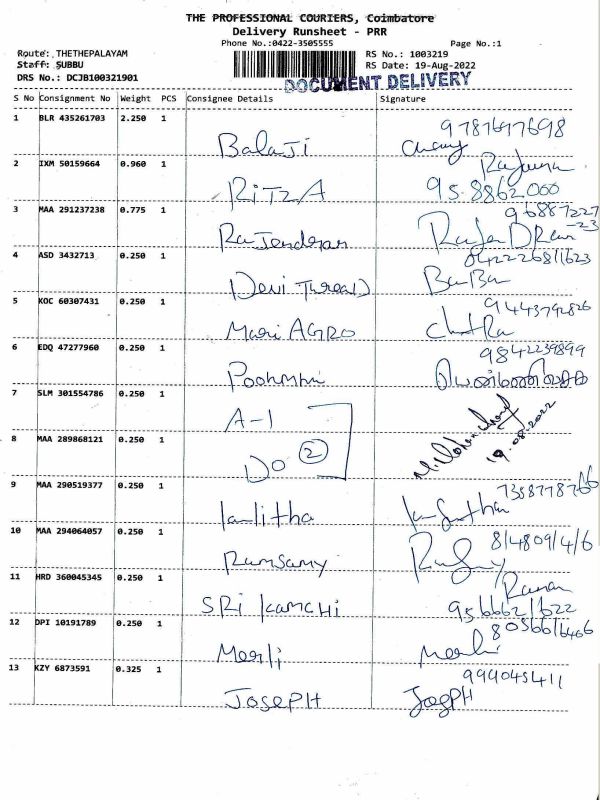 THE PROFESSIONAL COURIERS, Coimbatore
Delivery Runsheet - PRR
Phone No.:0422-3505555 Page No.:1
Route: THETHEPALAYAM RS No.: 1003219
Staff: SUBBU RS Date: 19-Aug-2022
DRS No.: DCJB100321901 DOCUMENT DELIVERY
S No Consignment No Weight PCS Consignee Details Signature
1 BLR 435261703 2.250 1
Balaji 9787697698
2 IXM 50159664 0.960 1
RITZA 958862000
3 MAA 291237238 0.775 1
Rajendran
4 ASD 3432713 0.250 1
Devi Thread BaBa
5 KOC 60307431 0.250 1 9443792826
Mari AGRO
6 EDQ 47277960 0.250 1 9842239899
7 SLM 301554786 0.250 1
A-1
8 MAA 289868121 0.250 1
Do 2 19.08.2022
9 MAA 290519377 0.250 1
Lalitha
10 MAA 294064057 0.250 1 8148091416
Ramsamy
11 HRD 360045345 0.250 1 Raman
SRI KAMCHI 9566621622
12 DPI 10191789 0.250 1
Merli Merli
13 KZY 6873591 0.325 1 9990453411
JOSEPH JosPH